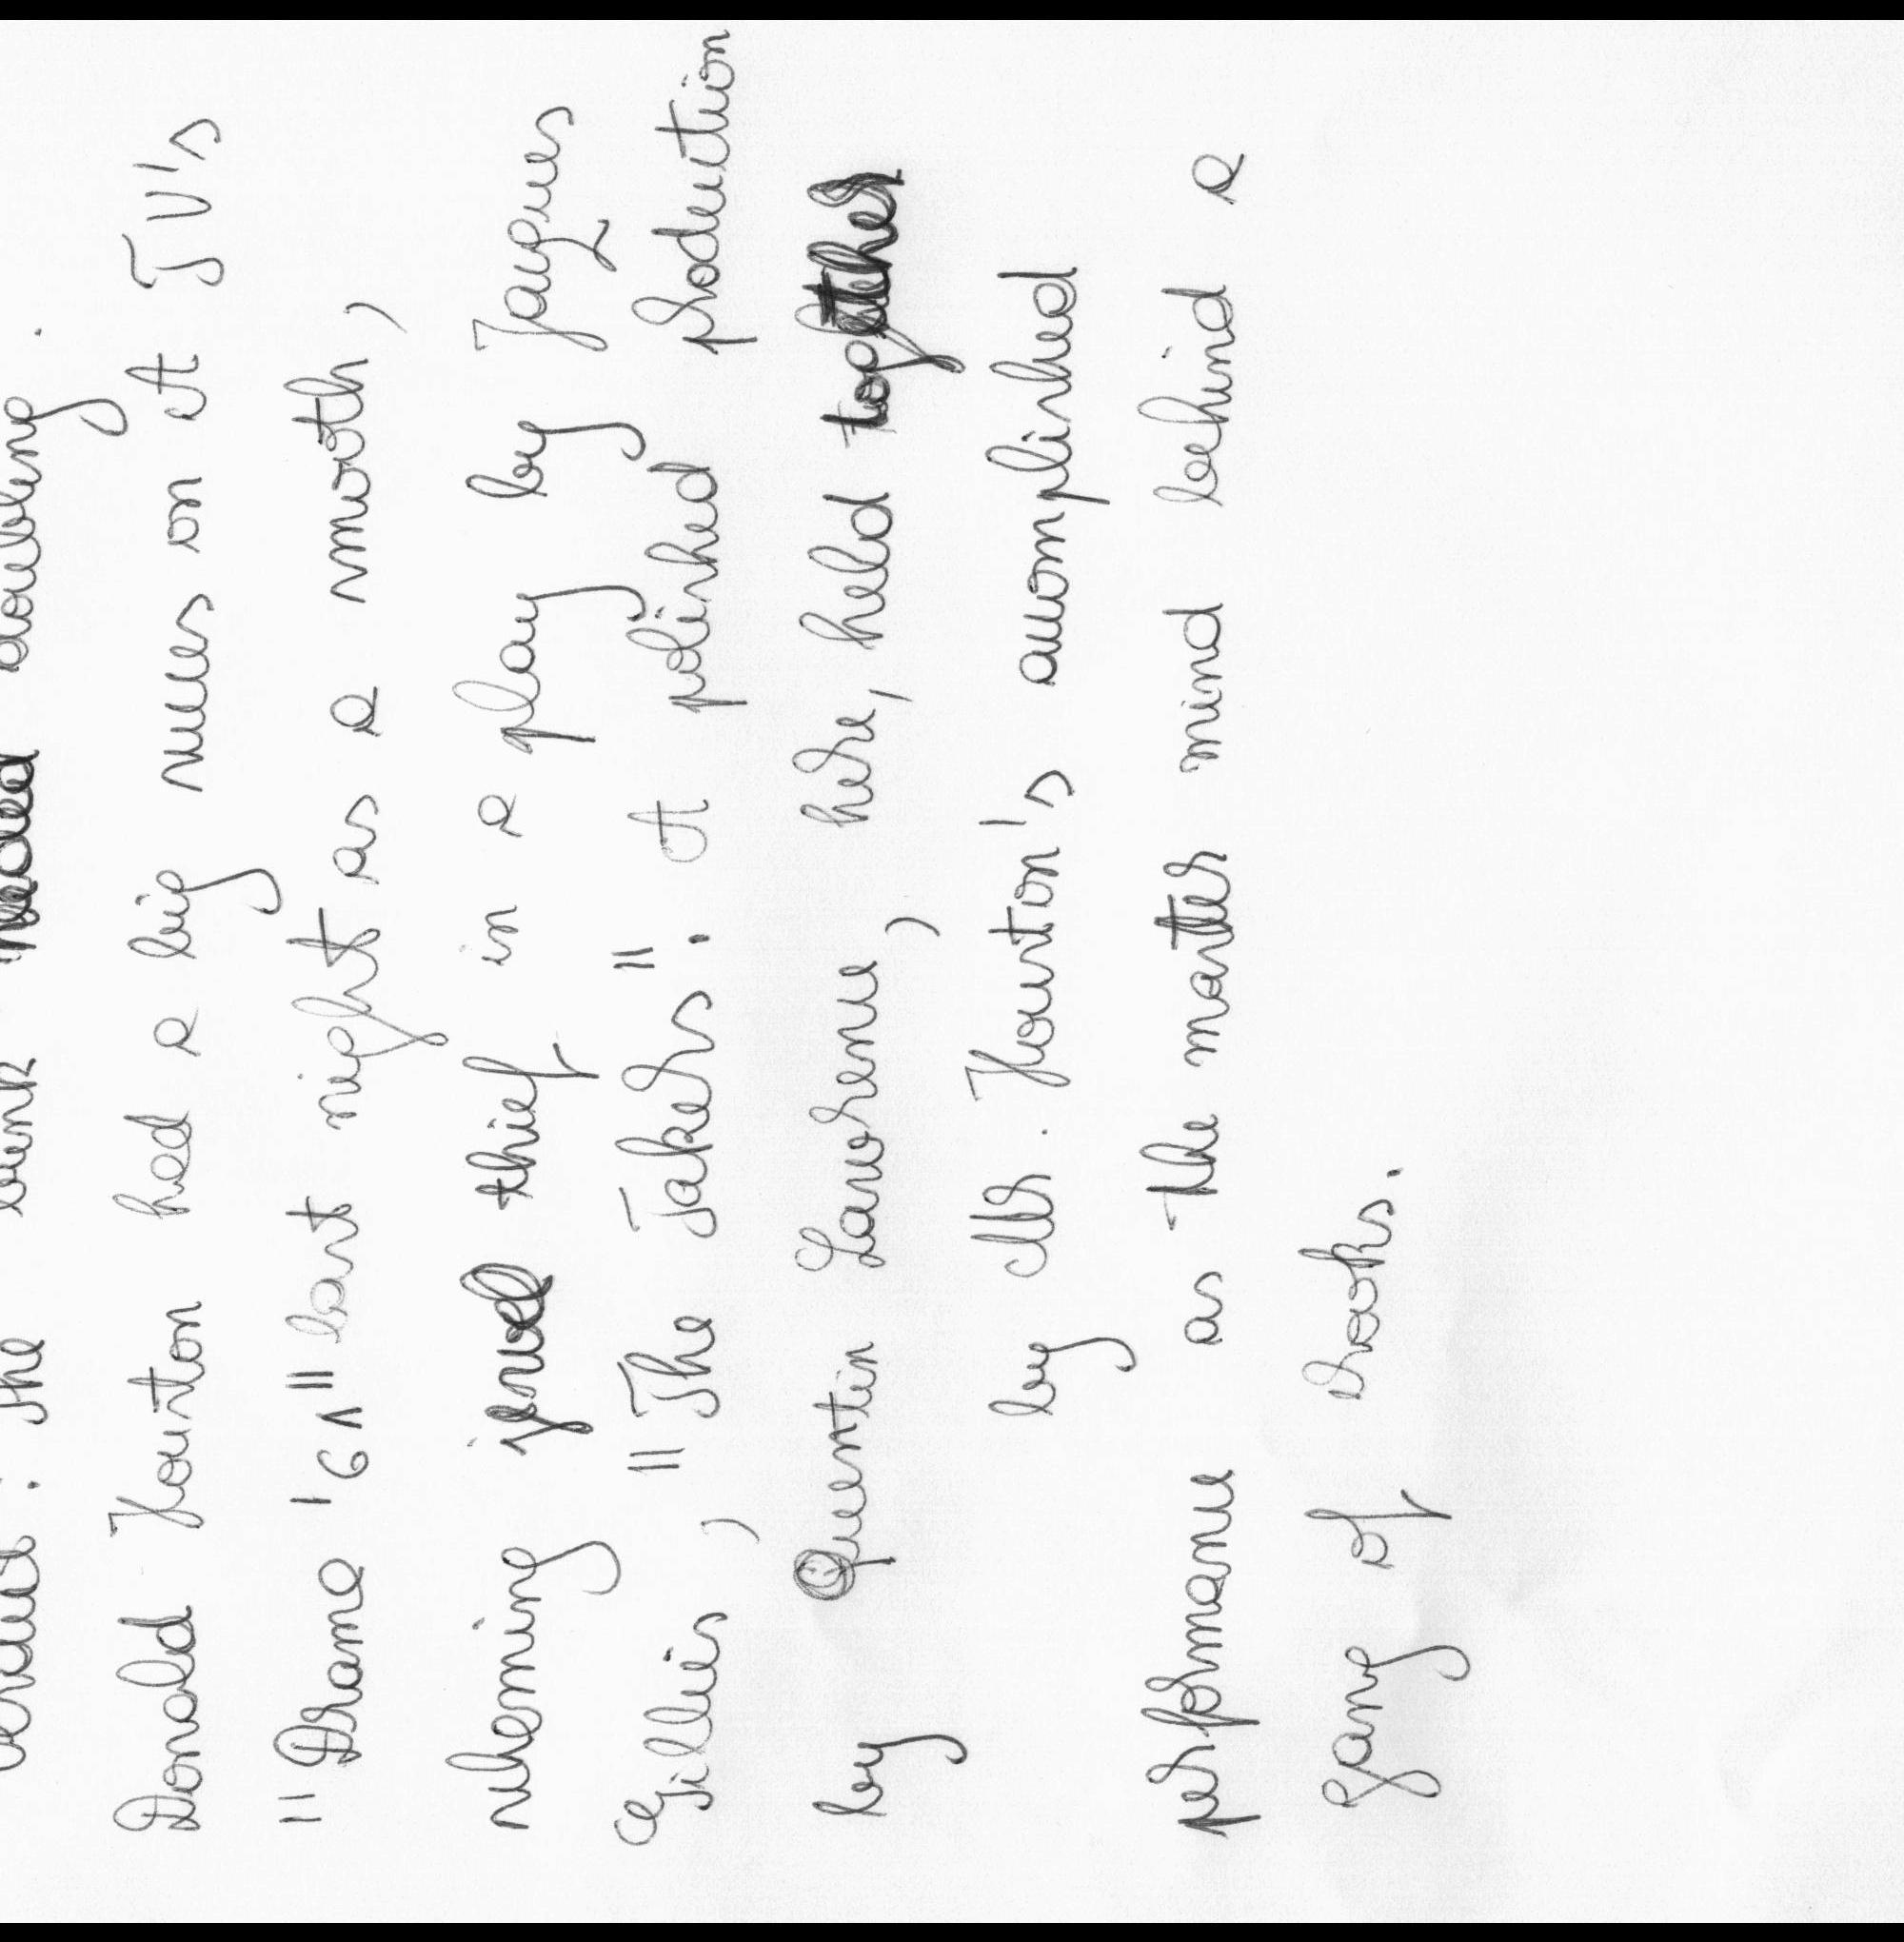 verdict : The bunk needed doubling .
Donald Houston had a big success on ATV's
"Drama '61" last night as a smooth,
scheming jewel thief in a play by Jacques
Gillies, "The Takers". A polished production
by Quentin Lawrence, here, held together
by Mr. Houston's accomplished
performance as the master mind behind a
gang of crooks.